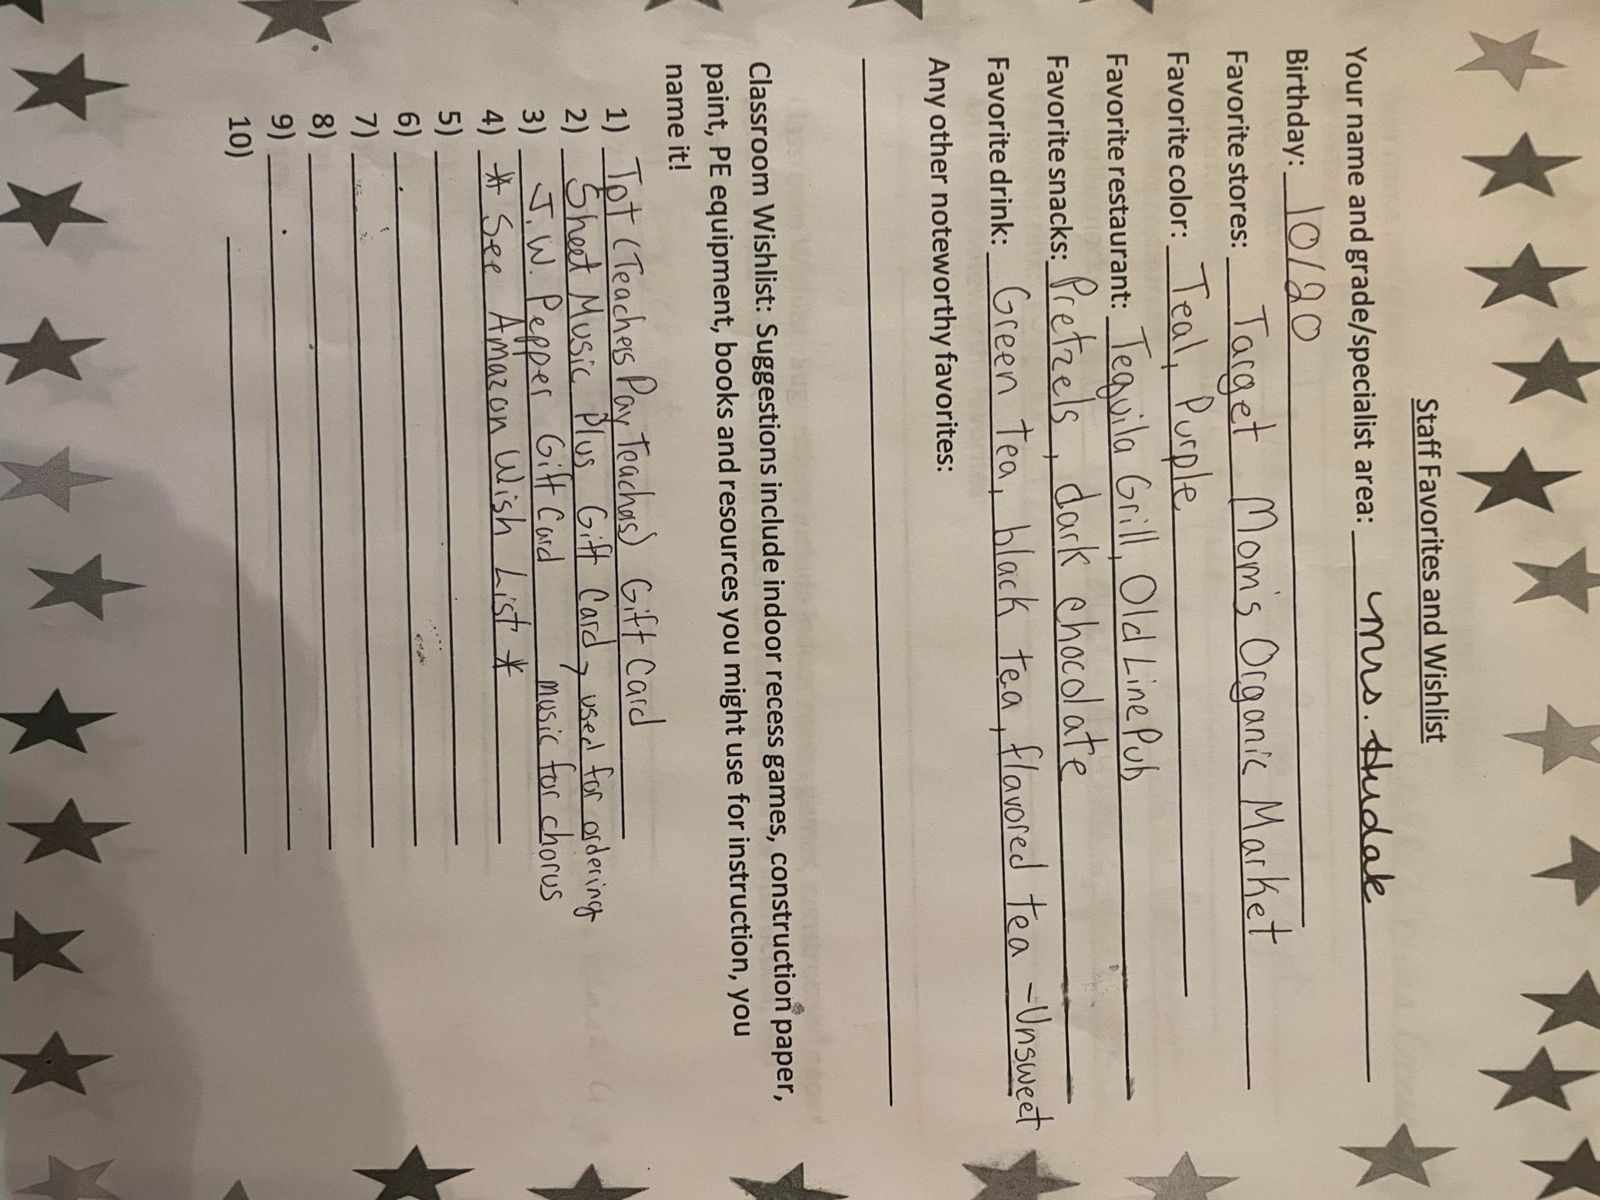 Staff Favorites and Wishlist
Your name and grade/specialist area: Mrs. Hudak
Birthday: 10/20
Favorite stores: Target Mom's Organic Market
Favorite color: Teal, Purple
Favorite restaurant: Tequila Grill, Old Line Pub
Favorite snacks: Pretzels, dark chocolate
Favorite drink: Green tea, black tea, flavored tea - Unsweet
Any other noteworthy favorites:
Classroom Wishlist: Suggestions include indoor recess games, construction paper,
paint, PE equipment, books and resources you might use for instruction, you
name it!
1) Tpt (Teachers Pay Teachers) Gift Card
2) Sheet Music Plus Gift Card > used for ordering
3) J.W. Pepper Gift Card music for chorus
4) * See Amazon Wish List *
5)
6)
7)
8)
9)
10)